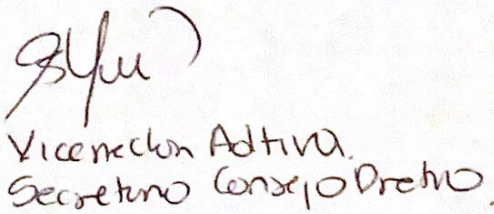 Vicerrector Adtiva.
Secretario Consejo Dretivo.